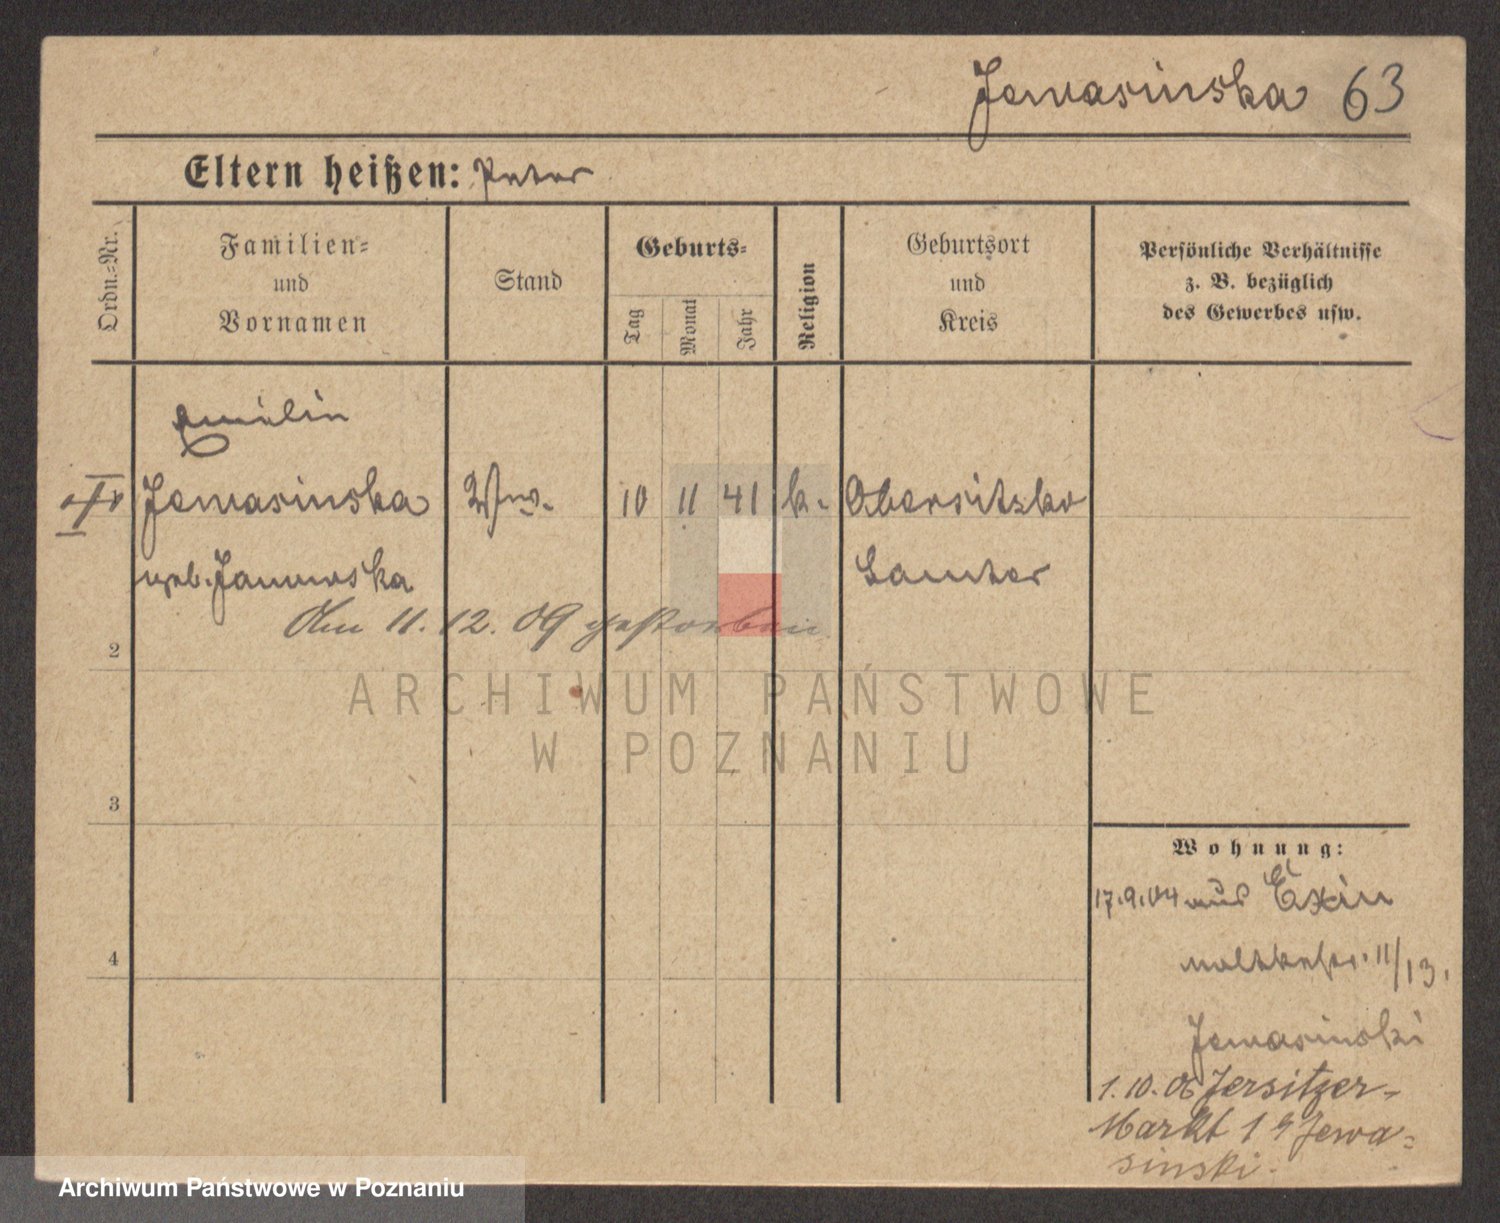 Jewasinska 63
Eltern heißen: Peter
Ordn.-Nr.
Familien-
und
Vornamen
Stand
Geburts-
Tag
Monat
Jahr
Religion
Geburtsort
und
Kreis
Persönliche Verhältnisse
z. B. bezüglich
des Gewerbes usw.
Emilie
Jewasinska Ww. 10 11 41 k. Obersitzko
geb. Janowska Samter
Am 11.12.09 gestorben
2
ARCHIWUM PAŃSTWOWE
W POZNANIU
3
Wohnung:
17.9.04 aus Exin
4
Moltkestr. 11/13.
Jewasinski
1.10.06 Jersitzer-
Markt 1 Jewa-
sinski.
Archiwum Państwowe w Poznaniu